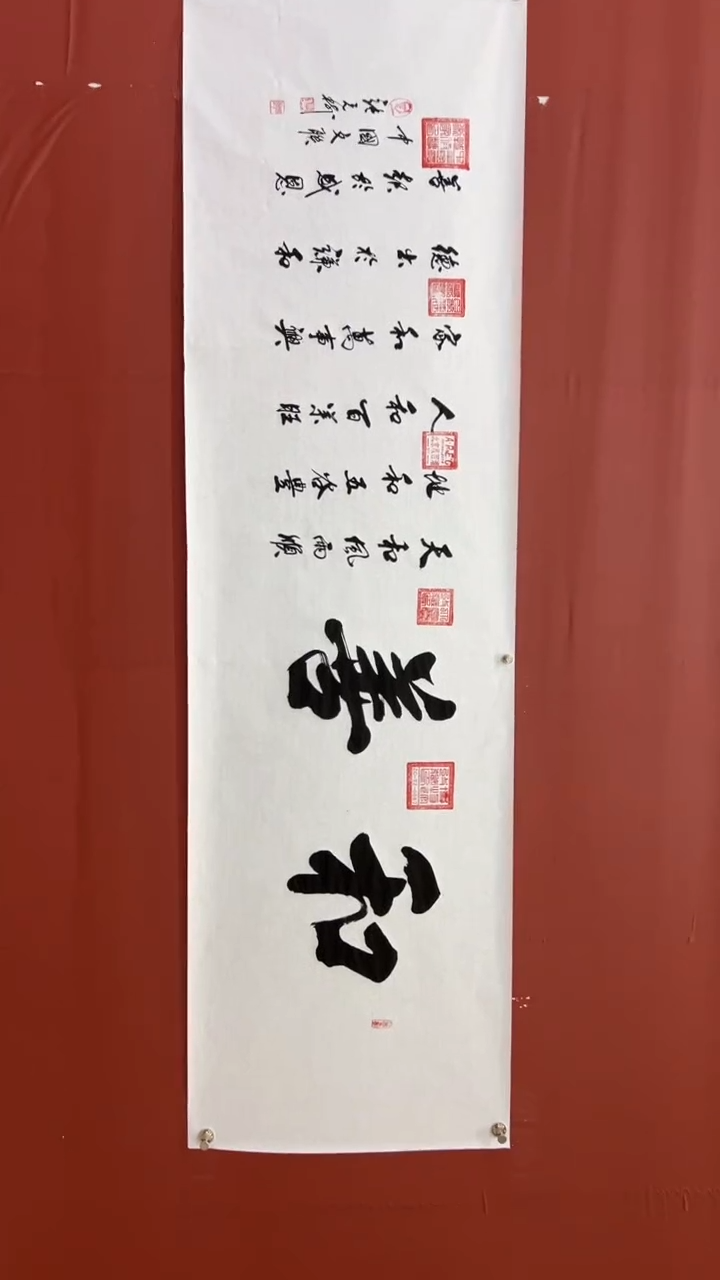 和善
天和風雨順
地和五谷豐
人和百業旺
家和萬事興
德出於謙和
善於感恩
中國文聯